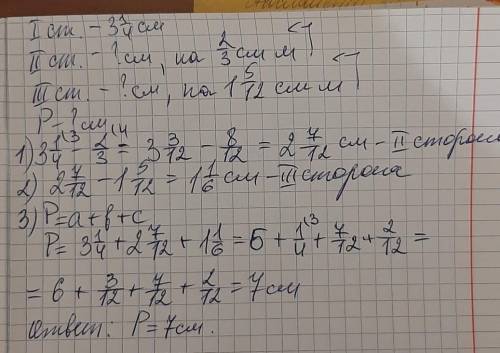 I ст. - 3 1/4 см
II ст. - ? см, на 2/3 см м
III ст. - ? см, на 1 5/12 см м
P - ? см
1) 3 1/4 - 2/3 = 3 3/12 - 8/12 = 2 7/12 см - II сторона
2) 2 7/12 - 1 5/12 = 1 1/6 см - III сторона
3) P = a + b + c
P = 3 1/4 + 2 7/12 + 1 1/6 = 6 + 1/4 + 7/12 + 2/12 =
= 6 + 3/12 + 7/12 + 2/12 = 7 см
Ответ: P = 7 см.